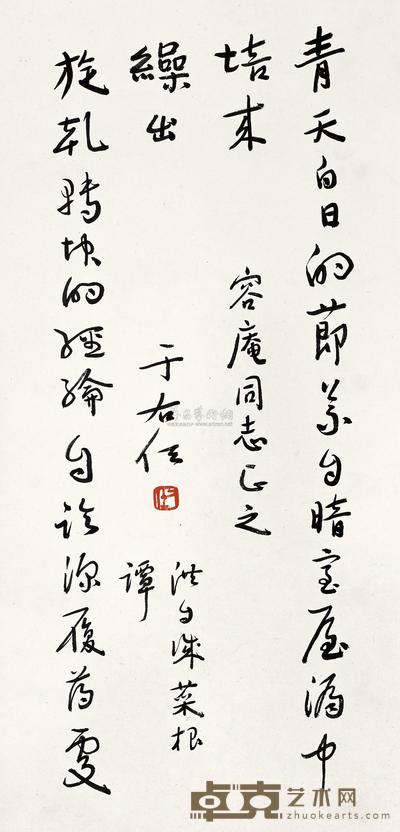 青天白日的節義自暗室屋漏中
培來
旋乾轉坤的經綸自臨深履薄處
繰出
洪自誠菜根
譚
容庵同志正之
于右任
卓克艺术网
zhuokearts.com